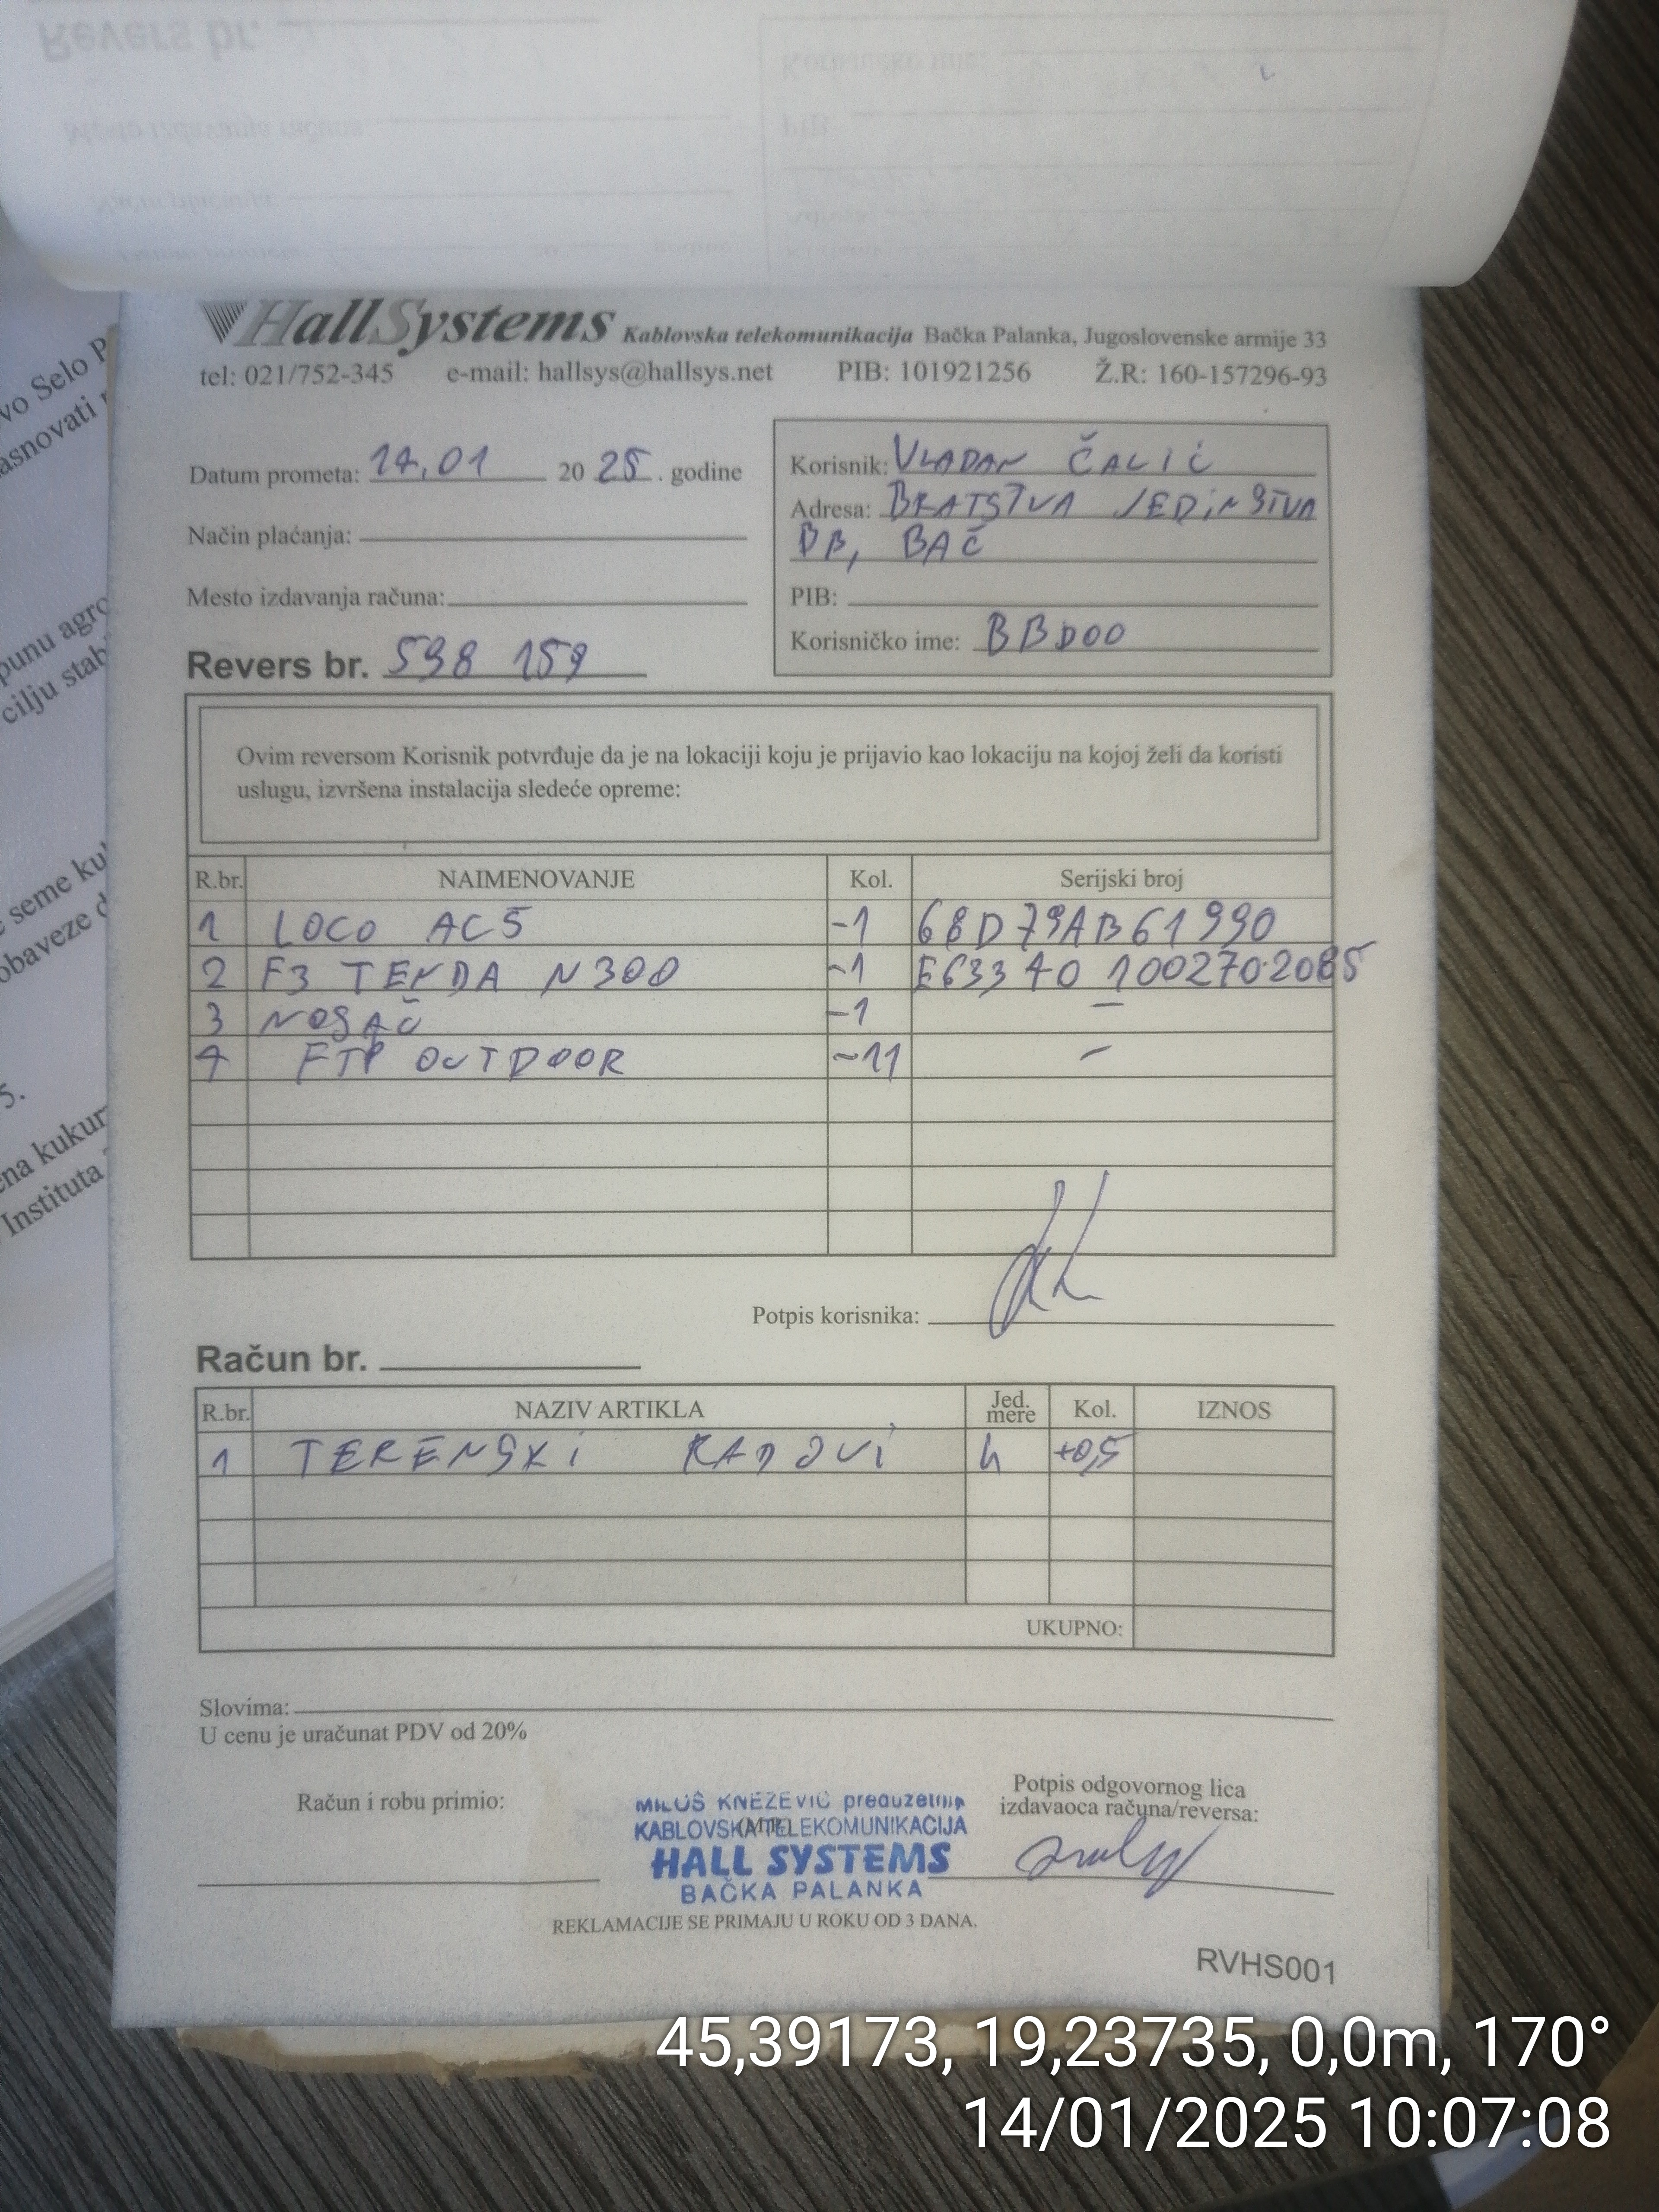 Revers br.
HallSystems Kablovska telekomunikacija Bačka Palanka, Jugoslovenske armije 33
tel: 021/752-345 e-mail: hallsys@hallsys.net PIB: 101921256 Ž.R: 160-157296-93
Datum prometa: 14.01 2025. godine
Način plaćanja:
Mesto izdavanja računa:
Revers br. 598 159
Korisnik: VLADAN ČALIĆ
Adresa: BRATSTVA JEDINSTVA
BB, BAČ
PIB:
Korisničko ime: BBD00
Ovim reversom Korisnik potvrđuje da je na lokaciji koju je prijavio kao lokaciju na kojoj želi da koristi
uslugu, izvršena instalacija sledeće opreme:
R.br. NAIMENOVANJE Kol. Serijski broj
1 LOCO AC5 -1 68D79AB61990
2 F3 TENDA N300 -1 E633401002702085
3 NOSAČ -1 -
4 FTP OUTDOOR -11 -
Potpis korisnika:
Račun br.
R.br. NAZIV ARTIKLA Jed. mere Kol. IZNOS
1 TERENSKI RADOVI h +0,5
UKUPNO:
Slovima:
U cenu je uračunat PDV od 20%
Račun i robu primio:
MILOŠ KNEŽEVIĆ preduzetnik
KABLOVSKA TELEKOMUNIKACIJA
(M.P.)
HALL SYSTEMS
BAČKA PALANKA
Potpis odgovornog lica
izdavaoca računa/reversa:
REKLAMACIJE SE PRIMAJU U ROKU OD 3 DANA.
RVHS001
vo Selo P
asnovati
punu agro
cilju stab
e seme ku
obaveze d
5.
ena kukur
Instituta
45,39173, 19,23735, 0,0m, 170°
14/01/2025 10:07:08